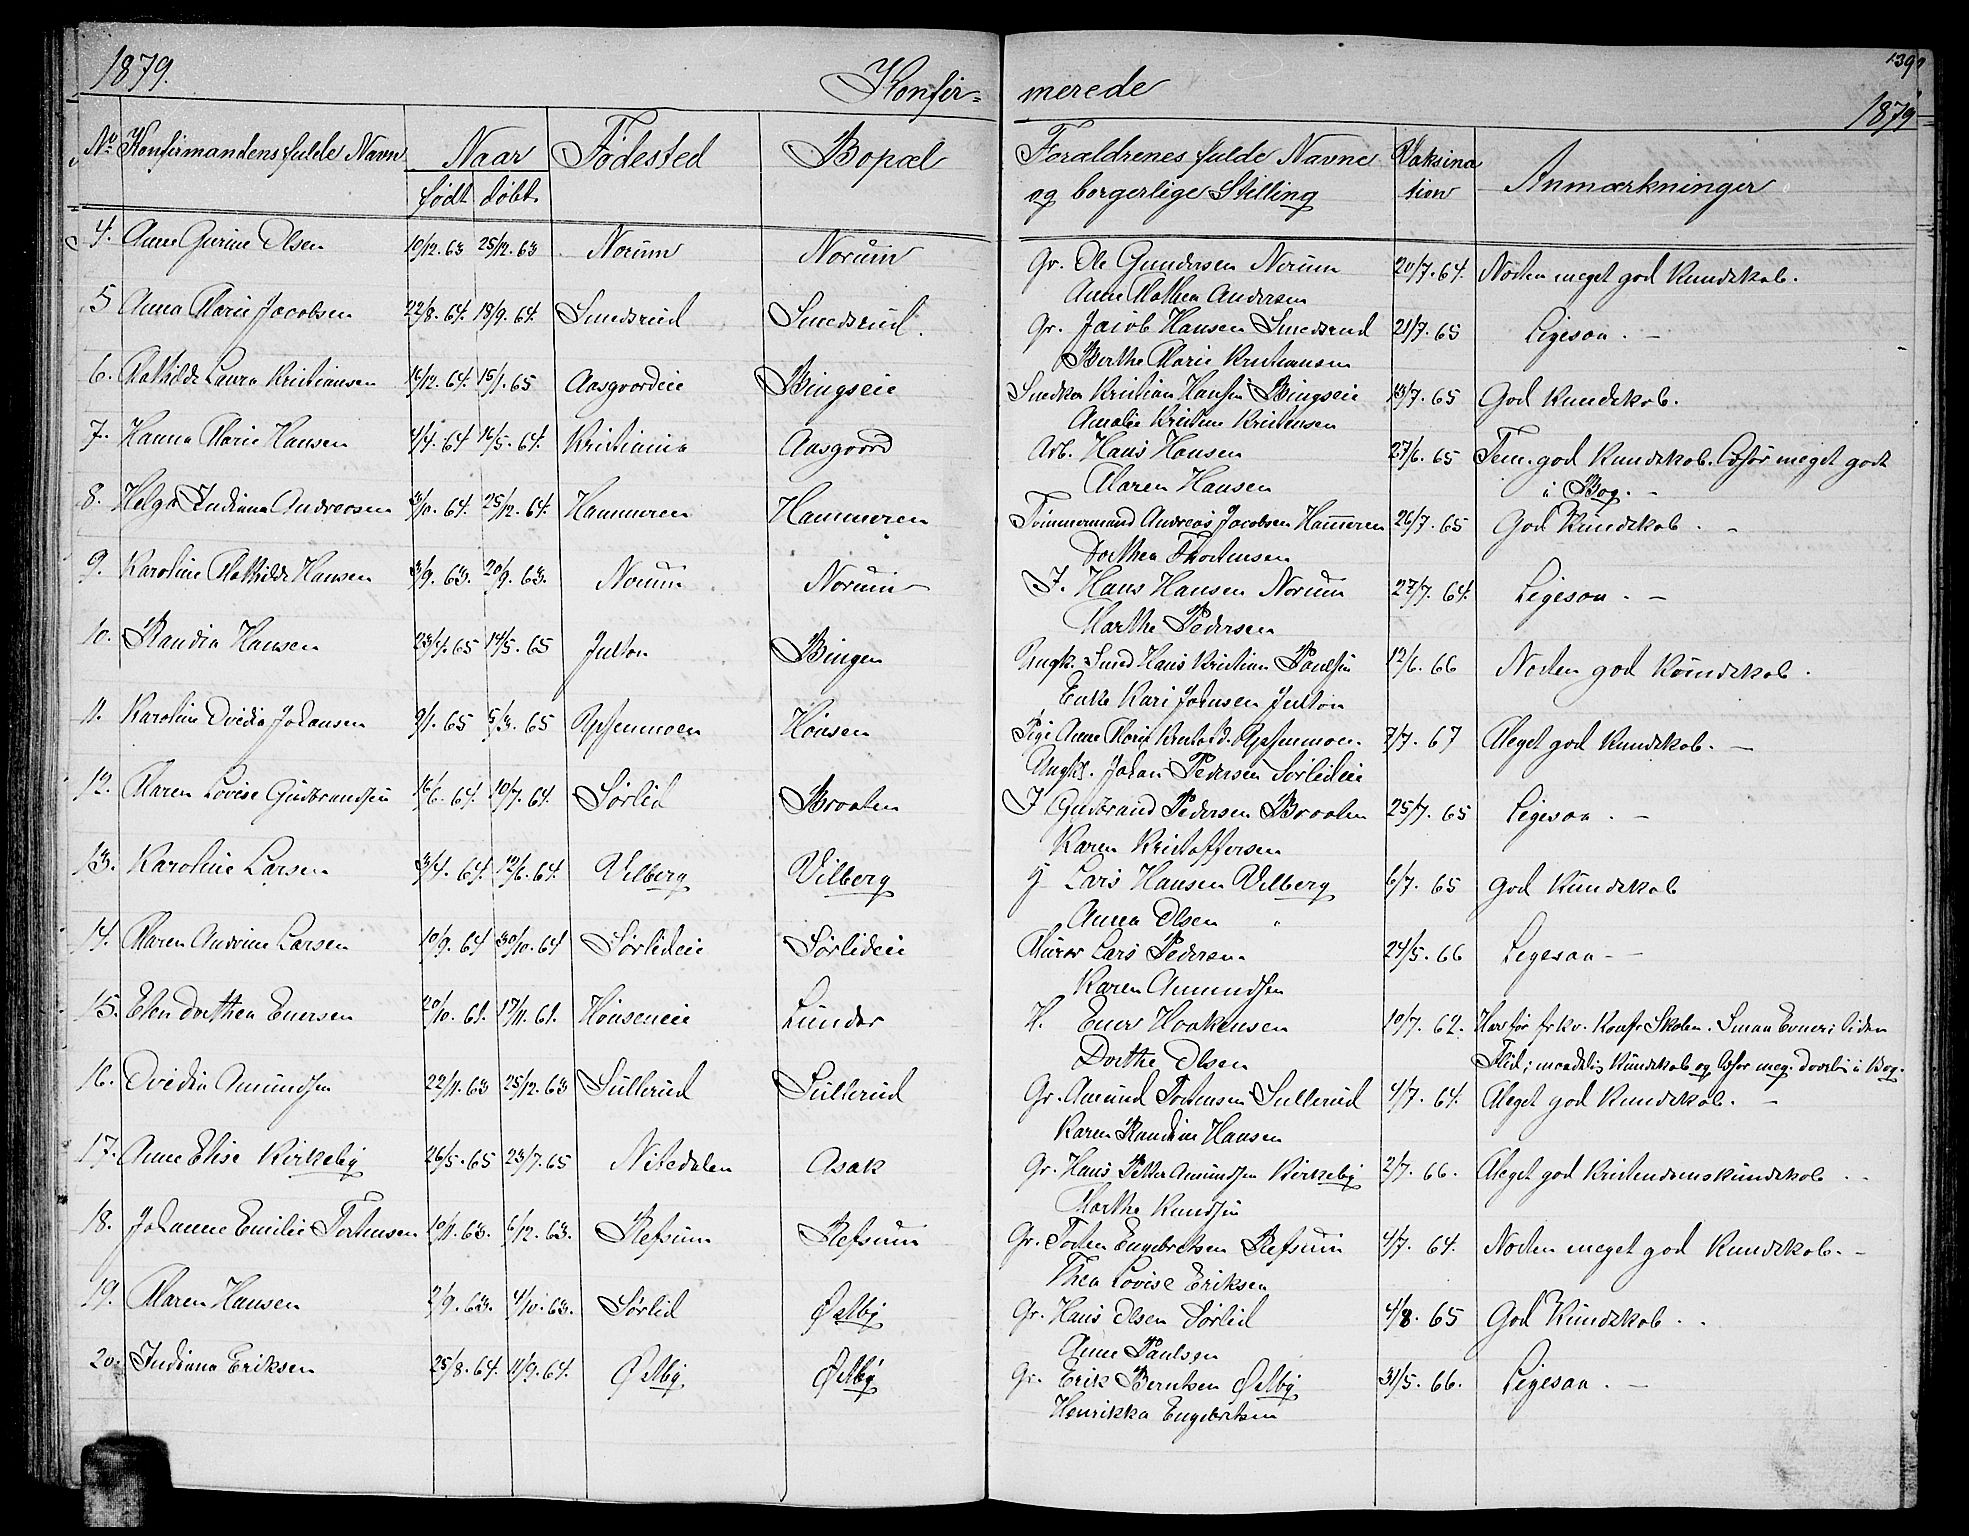 1879. Konfir= merede 139
1879
No. Konfirmandens fulde Navn Naar Fødested Bopæl Forældrenes fulde Navne Vaksina
født døbt og borgerlige Stilling tion Anmærkninger
4. Anne Gurine Olsen 10/12.63 25/12.63 Norum Norum Gr. Ole Gundersen Norum 20/7.64. Næsten meget god Kundskab.
Anne Mathea Andersen
5 Anna Marie Jacobsen 22/8.64. 18/9.64. Smedsrud Smedsrud. Gr. Jacob Hansen Smedsrud 21/7.65 Ligesaa. -
Berthe Marie Kristiansen
6. Mathilde Laura Kristiansen 16/12.64. 15/1.65 Aasgaardeie Bingseie Snedker Kristian Hansen Bingseie 13/7.65 God Kundskab.
Amalie Kristine Kristensen
7. Hanna Marie Hansen 4/4.64 16/5.64. Kristiania Aasgaard Arb. Hans Hansen 27/6.65 Tem. god Kundskab. Læser meget godt
Maren Hansen i Bog. -
8. Helga Indiana Andreasen 3/10.64. 25/12.64. Hammeren Hammeren Tømmermand Andreas Jacobsen Hammeren 26/7.65 God Kundskab. -
Dorthea Thorstensen
9. Karoline Mathilde Hansen 3/9.63. 20/9.63. Norum Norum I. Hans Hansen Norum 27/7.64. Ligesaa. -
Marthe Pedersen
10. Randia Hansen 23/4.65 14/5.65 Julton Bingen Ungk. Smed Hans Kristian Paulsen 12/6.66 Næsten god Kundskab.
Enke Kari Johnsen Julton
11. Karoline Ovidia Johansen 9/1.65 5/3.65 Ryssenmoen Hønsen Pige Anne Marie Kristofd. Ryssenmoen. 7/7.67 Meget god Kundskab. -
Ungk. Johan Pedersen Sørlideie
12. Maren Lovise Gudbrandsen 16/6.64. 10/7.64. Sørlid Braaten I Gudbrand Pedersen Braaten 25/7.65 Ligesaa. -
Karen Kristoffersen
13. Karoline Larsen 3/4.64. 12/6.64. Vilberg Vilberg G Lars Hansen Vilberg 6/7.65 God Kundskab
Anna Olsen "
14. Maren Andrine Larsen 10/9.64 30/10.64 Sørlideie Sørlideie Murer Lars Pedersen 24/5.66 Ligesaa - -
Karen Amundsen
15. Elen Dorthea Enersen 20/10.61. 17/11.61. Hønseneie Lunder H. Ener Haakensen 19/7.62. Har før frkv. Konfr Skolen. Smaa Evner; liden
Dorthe Olsen Flid; maadelig Kundskab og læser meg. daarlig i Bog.
16. Ovidia Amundsen 22/11.63 25/12.63 Sullerud Sullerud Gr. Amund Torstensen Sullerud 4/7.64. Meget god Kundskab. -
Karen Randine Hansen
17. Anne Elise Kirkeby 26/5.65 23/7.65 Nitedalen Asak Gr. Hans Petter Amundsen Kirkeby 2/7.66. Meget god Kristendomskundskab . .
Marthe Knudsen
18. Johanne Emilie Torstensen 10/11.63. 6/12.63. Refsum Refsum Gr. Torsten Engebretsen Refsum 4/7.64. Næsten meget god Kundskab. -
Thea Lovise Eriksen
19. Maren Hansen 2/9.63. 4/10.63. Sørlid Østby Gr. Hans Olsen Sørlid 4/8.65 God Kundskab. .
Anne Paulsen
20. Indiana Eriksen 25/8.64. 11/9.64. Østby Østby Gr. Erik Berntsen Østby 31/5.66. Ligesaa. -
Henrikka Engebretsen